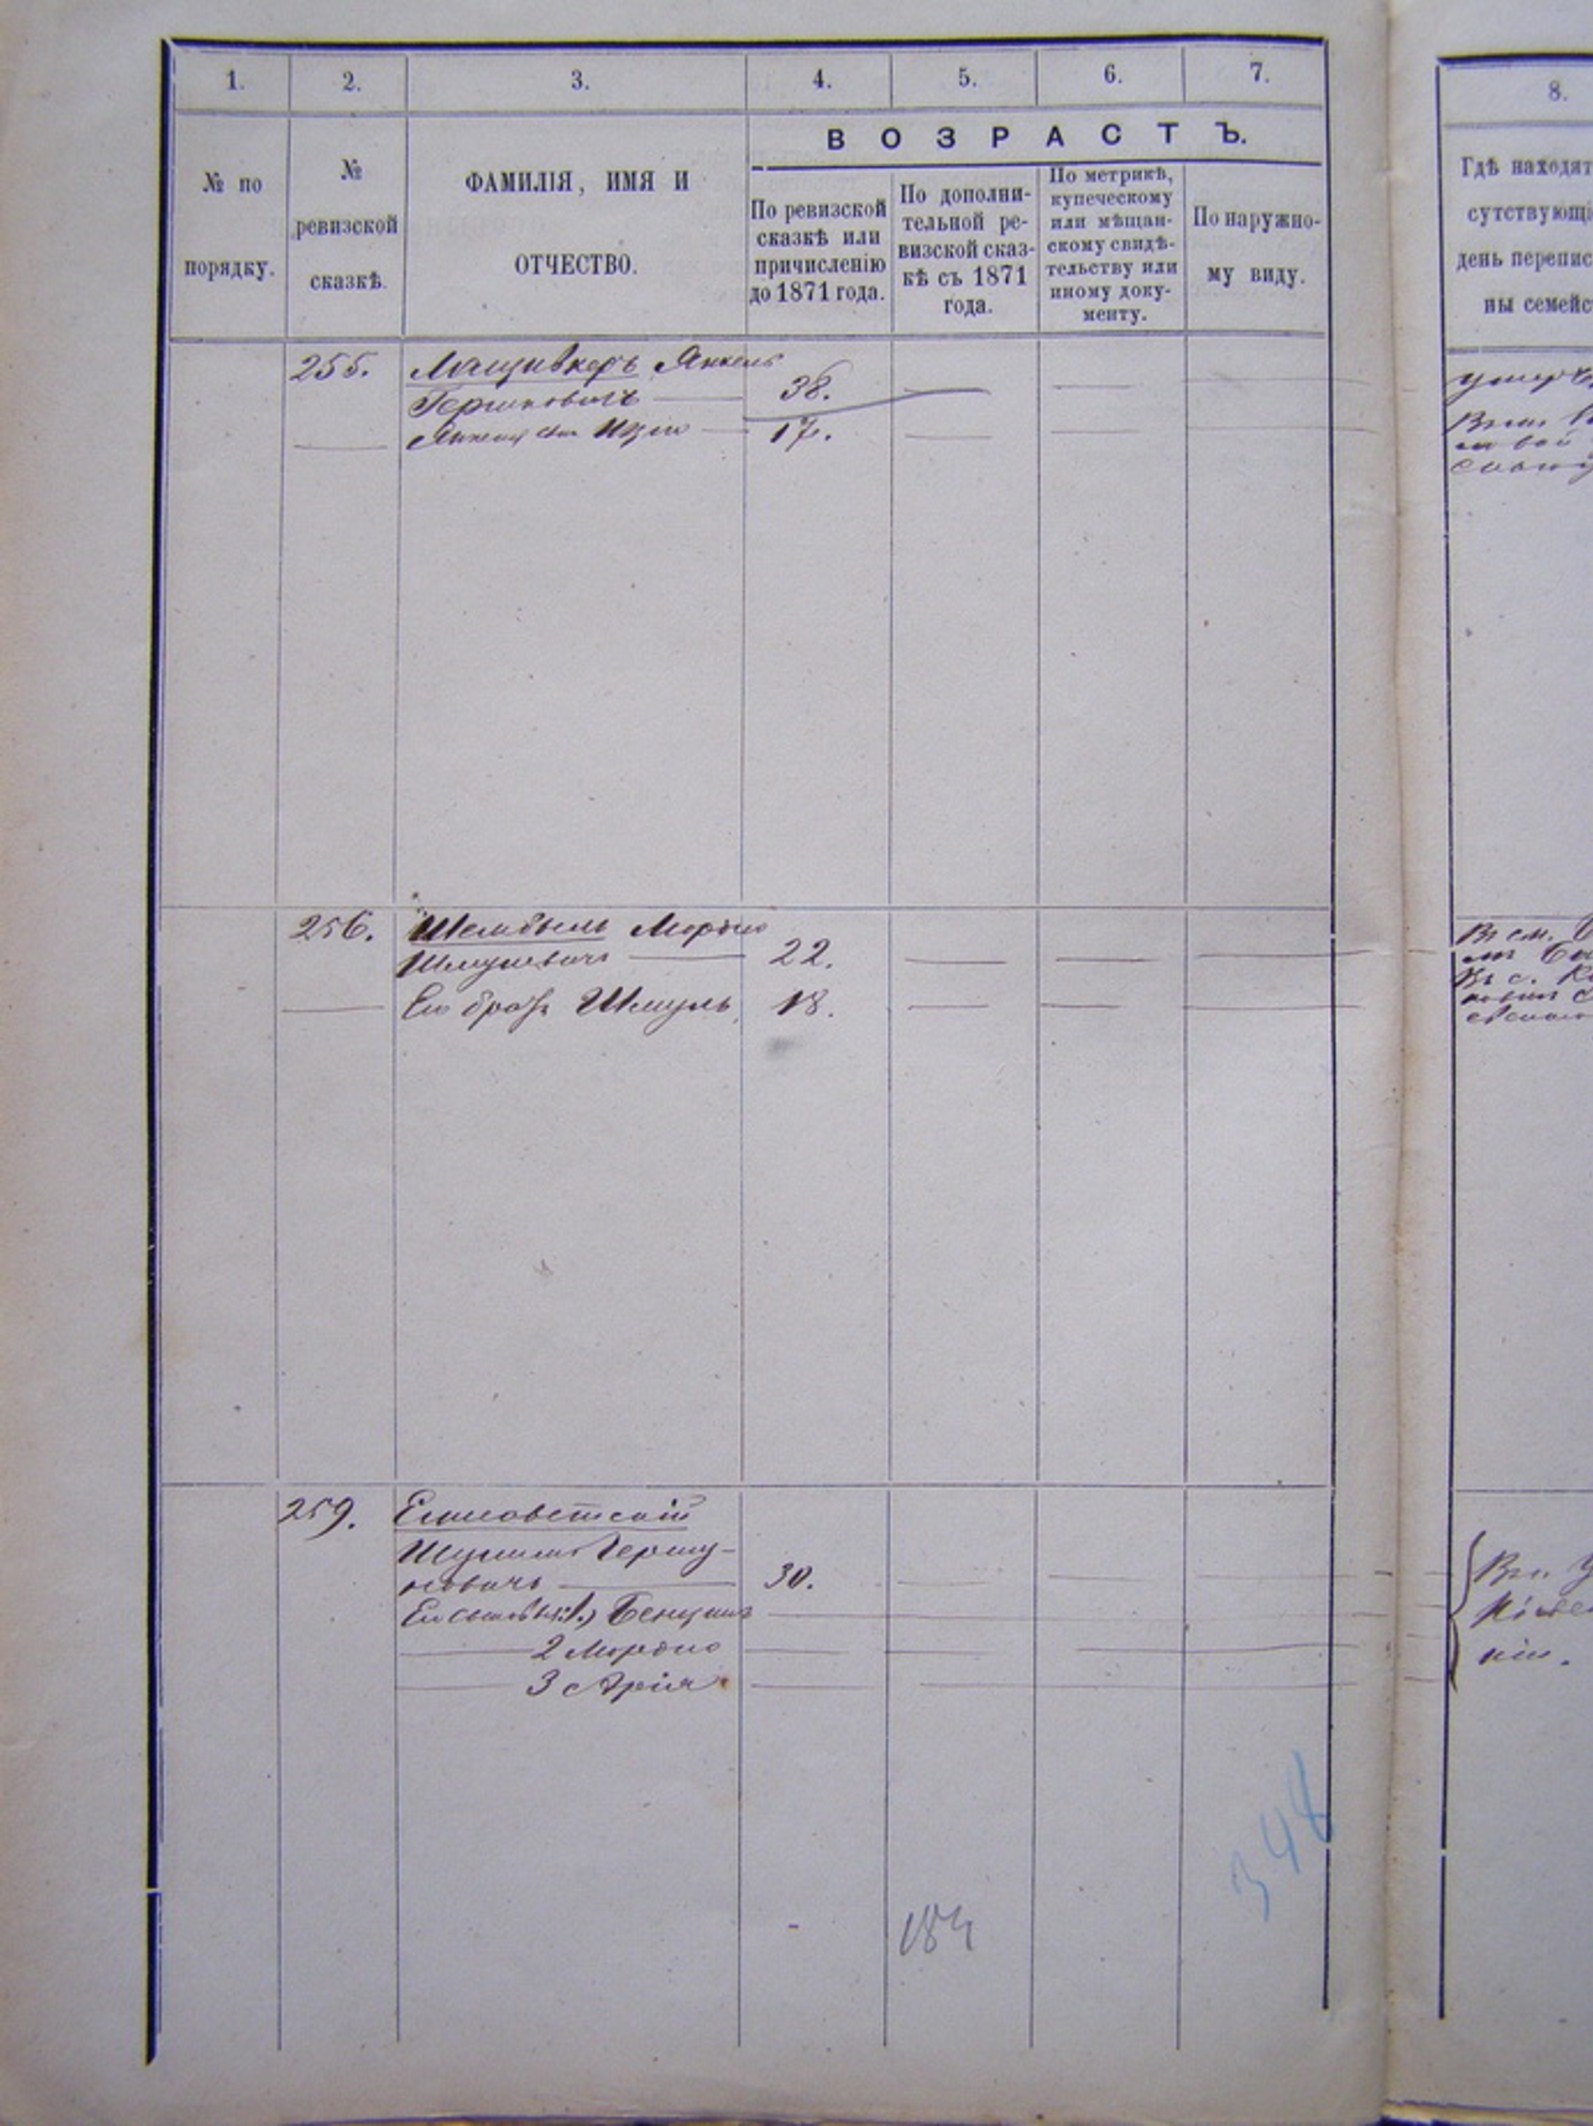 1. 2. 3. 4. 5. 6. 7.
№ по
порядку.
№
ревизской
сказкѣ.
ФАМИЛІЯ, ИМЯ И
ОТЧЕСТВО.
ВОЗРАСТЪ.
По ревизской
сказкѣ или
причисленію
до 1871 года.
По дополни-
тельной ре-
визской сказ-
кѣ съ 1871
года.
По метрикѣ,
купеческому
или мѣщан-
скому свидѣ-
тельству или
иному доку-
менту.
По наружно-
му виду.
255. Мащивкеръ Янкель
Гершковичъ 38.
Янкеля сын Ицко 17.
256. Шембель Мордко
Шмулевичъ 22.
Его братъ Шмуль 18.
259. Елисаветскій
Шулимъ Гершу-
новичъ 30.
Его сыновья: 1) Бенцион
2 Мордко
3 Арія
184
348
8.
Гдѣ находят
сутствующі
день перепис
ны семейс